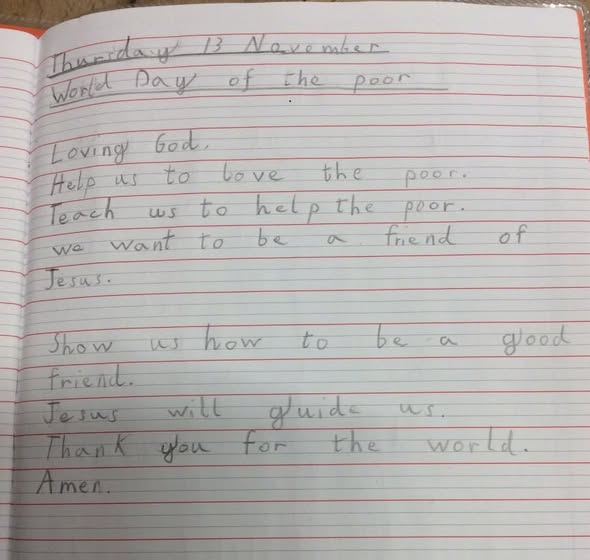 Thursday 13 November
World Day of the poor
Loving God.
Help us to love the poor.
Teach us to help the poor.
we want to be a friend of
Jesus.
Show us how to be a good
friend.
Jesus will gluide us.
Thank you for the world.
Amen.